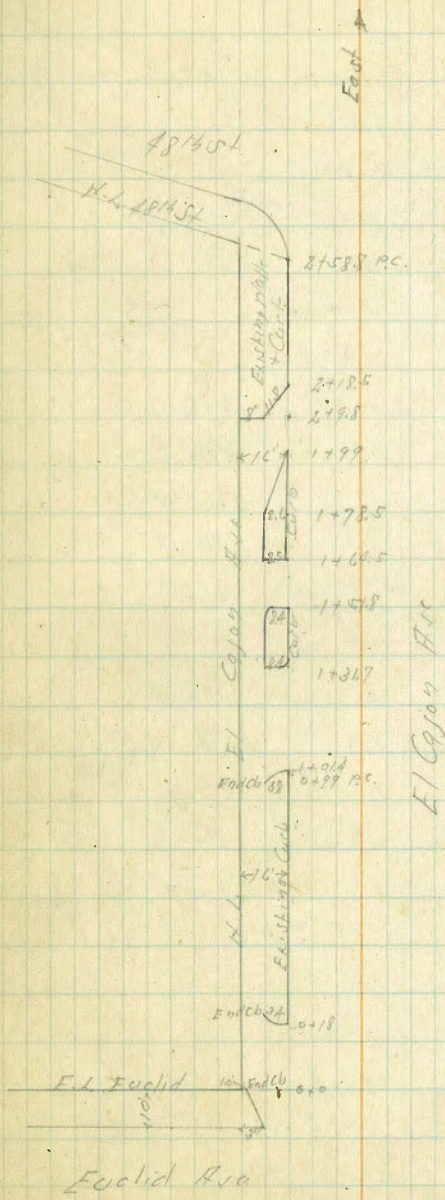 East
48th St
N.L. 48th St
2+58.8 P.C.
Existing Walk
+ Curb
2+18.5
2+9.8
16
1+99
1+78.5
Curb
1+69.5
1+51.8
84
Curb
1+31.7
N.L. El Cajon Ave
El Cajon Ave
1+01.4
End Cb
0+99 P.C.
16
Existing Curb
End Cb
0+18
E.L. Euclid
10
End Cb
0+0
10
Euclid Ave